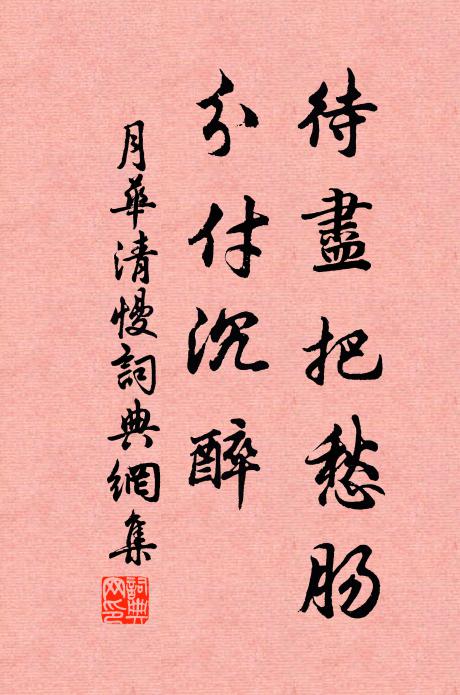 待盡把愁肠
分付沉醉
月華清慢詞典網集
詞典网印